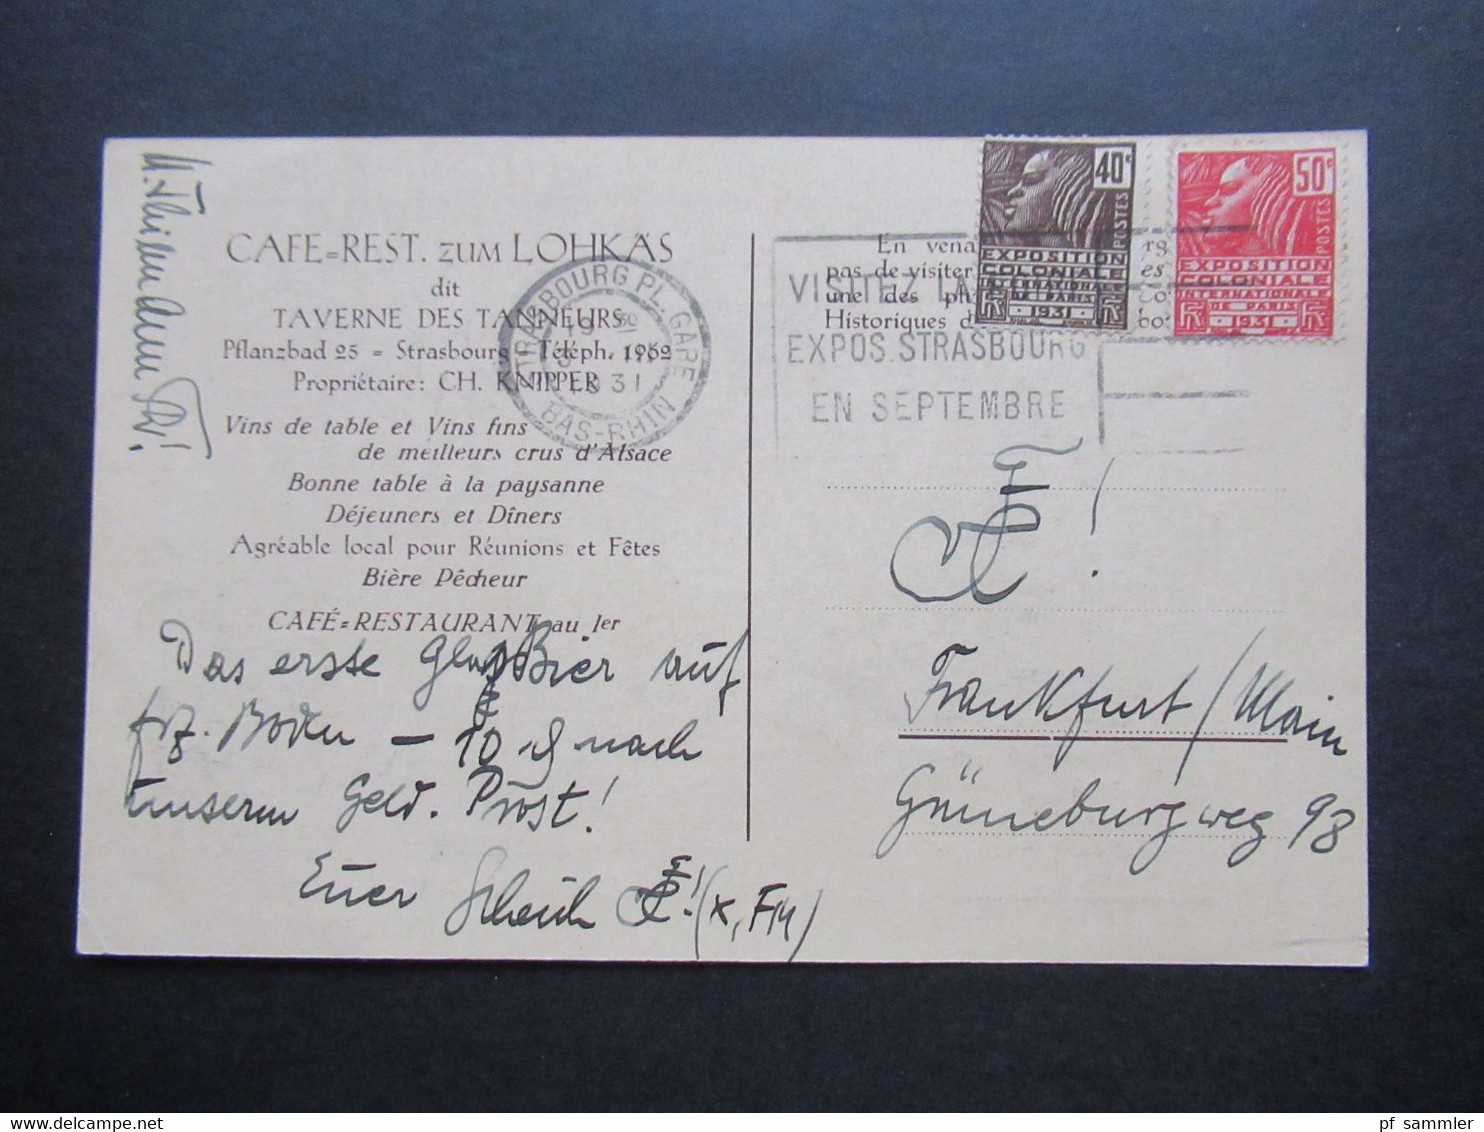 CAFE=REST. ZUM LOHKÄS
dit
TAVERNE DES TANNEURS
Pflanzbad 25 = Strasbourg = Téléph. 1962
Propriétaire: CH. KNIPPER
Vins de table et Vins fins
de meilleurs crus d'Alsace
Bonne table à la paysanne
Déjeuners et Dîners
Agréable local pour Réunions et Fêtes
Bière Pêcheur
CAFÉ=RESTAURANT au 1er
Das erste Glas Bier auf
frz. Boden – 10 ₰ nach
unserm Geld. Prost!
Euer
STRASBOURG PL. GARE
1931
BAS-RHIN
En
pas de visiter
une des
Historiques
VISITEZ
EXPOS. STRASBOURG
EN SEPTEMBRE
40c
POSTES
EXPOSITION
COLONIALE
INTERNATIONALE
DE PARIS
RF 1931 RF
50c
POSTES
EXPOSITION
COLONIALE
INTERNATIONALE
DE PARIS
RF 1931 RF
Frankfurt / Main
Grüneburgweg 98
pf_sammler